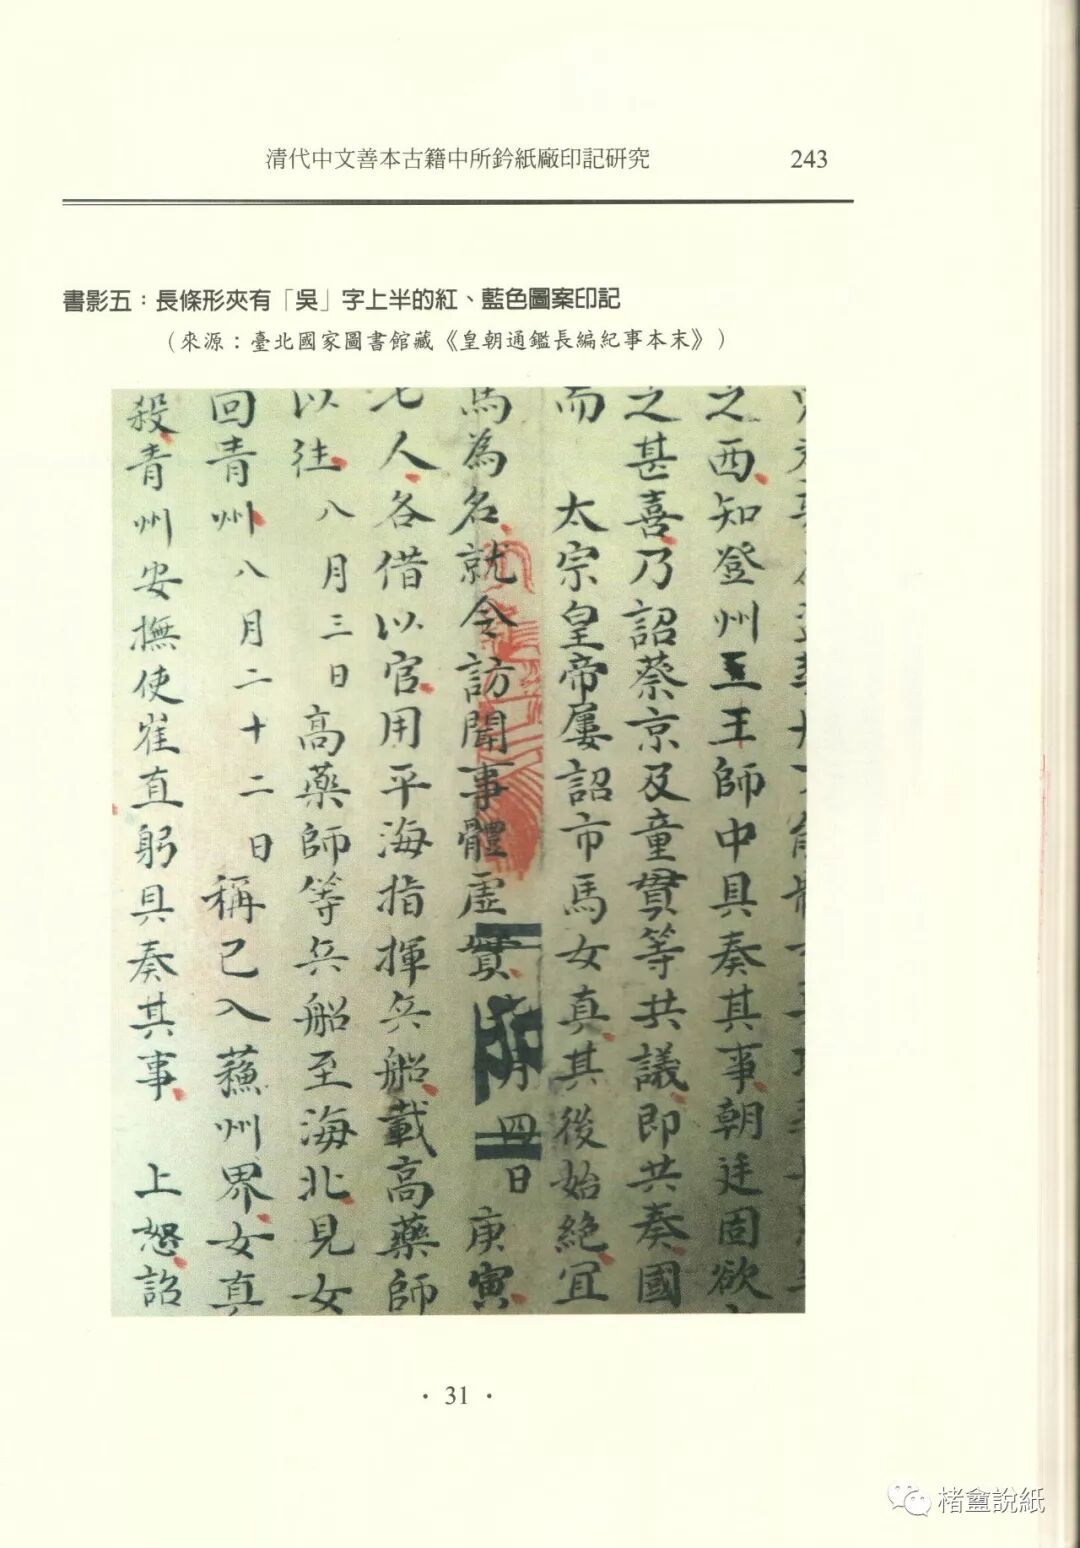 清代中文善本古籍中所鈐紙廠印記研究
243
書影五：長條形夾有「吳」字上半的紅、藍色圖案印記
（來源：臺北國家圖書館藏《皇朝通鑑長編紀事本末》）
之西知登州王王師中具奏其事朝廷固欲
之甚喜乃詔蔡京及童貫等共議即共奏國
而　太宗皇帝屢詔市馬女真其後始絕宜
馬為名就令訪聞事體虛實　月四日庚寅
七人各借以官用平海指揮兵船載高藥師
以往八月三日高藥師等兵船至海北見女
回青州八月二十二日稱已入蘓州界女真
殺青州安撫使崔直躬具奏其事　上怒詔
• 31 •
楮盦說紙